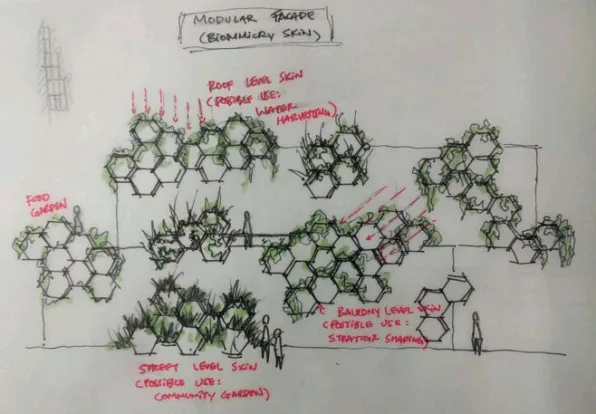 MODULAR FACADE
(BIOMIMICRY SKIN)
ROOF LEVEL SKIN
(POSSIBLE USE:
WATER
HARVESTING)
FOOD
GARDEN
BALKONY LEVEL SKIN
(POSSIBLE USE:
SHADING)
STREET LEVEL SKIN
(POSSIBLE USE:
COMMUNITY GARDEN)